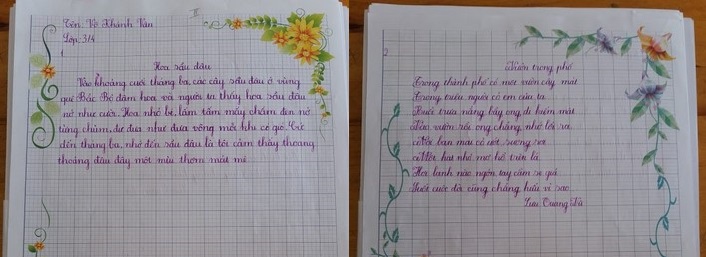 Tên: Võ Khánh Vân
Lớp: 3/4
1
Hoa sầu đâu
Vào khoảng cuối tháng ba, các cây sầu đâu ở vùng
quê Bắc Bộ đâm hoa và người ta thấy hoa sầu đâu
nở như cười. Hoa nhỏ bé, lấm tấm mấy chấm đen nở
từng chùm, đu đưa như đưa võng mỗi khi có gió. Cứ
đến tháng ba, nhớ đến sầu đâu là tôi cảm thấy thoang
thoảng đâu đây một mùi thơm mát mẻ
2
Vườn trong phố
Trong thành phố có một vườn cây mát
Trong triệu người có em của ta
Buổi trưa nắng bầy ong đi kiếm mật
Vào vườn rồi ong chẳng nhớ lối ra
Vội ban mai có ướt sương rơi
Một hạt nhỏ mơ hồ trên lá
Hơi lạnh nào ngón tay cầm se giá
Suốt cuộc đời cũng chẳng hiểu vì sao
Lưu Quang Vũ